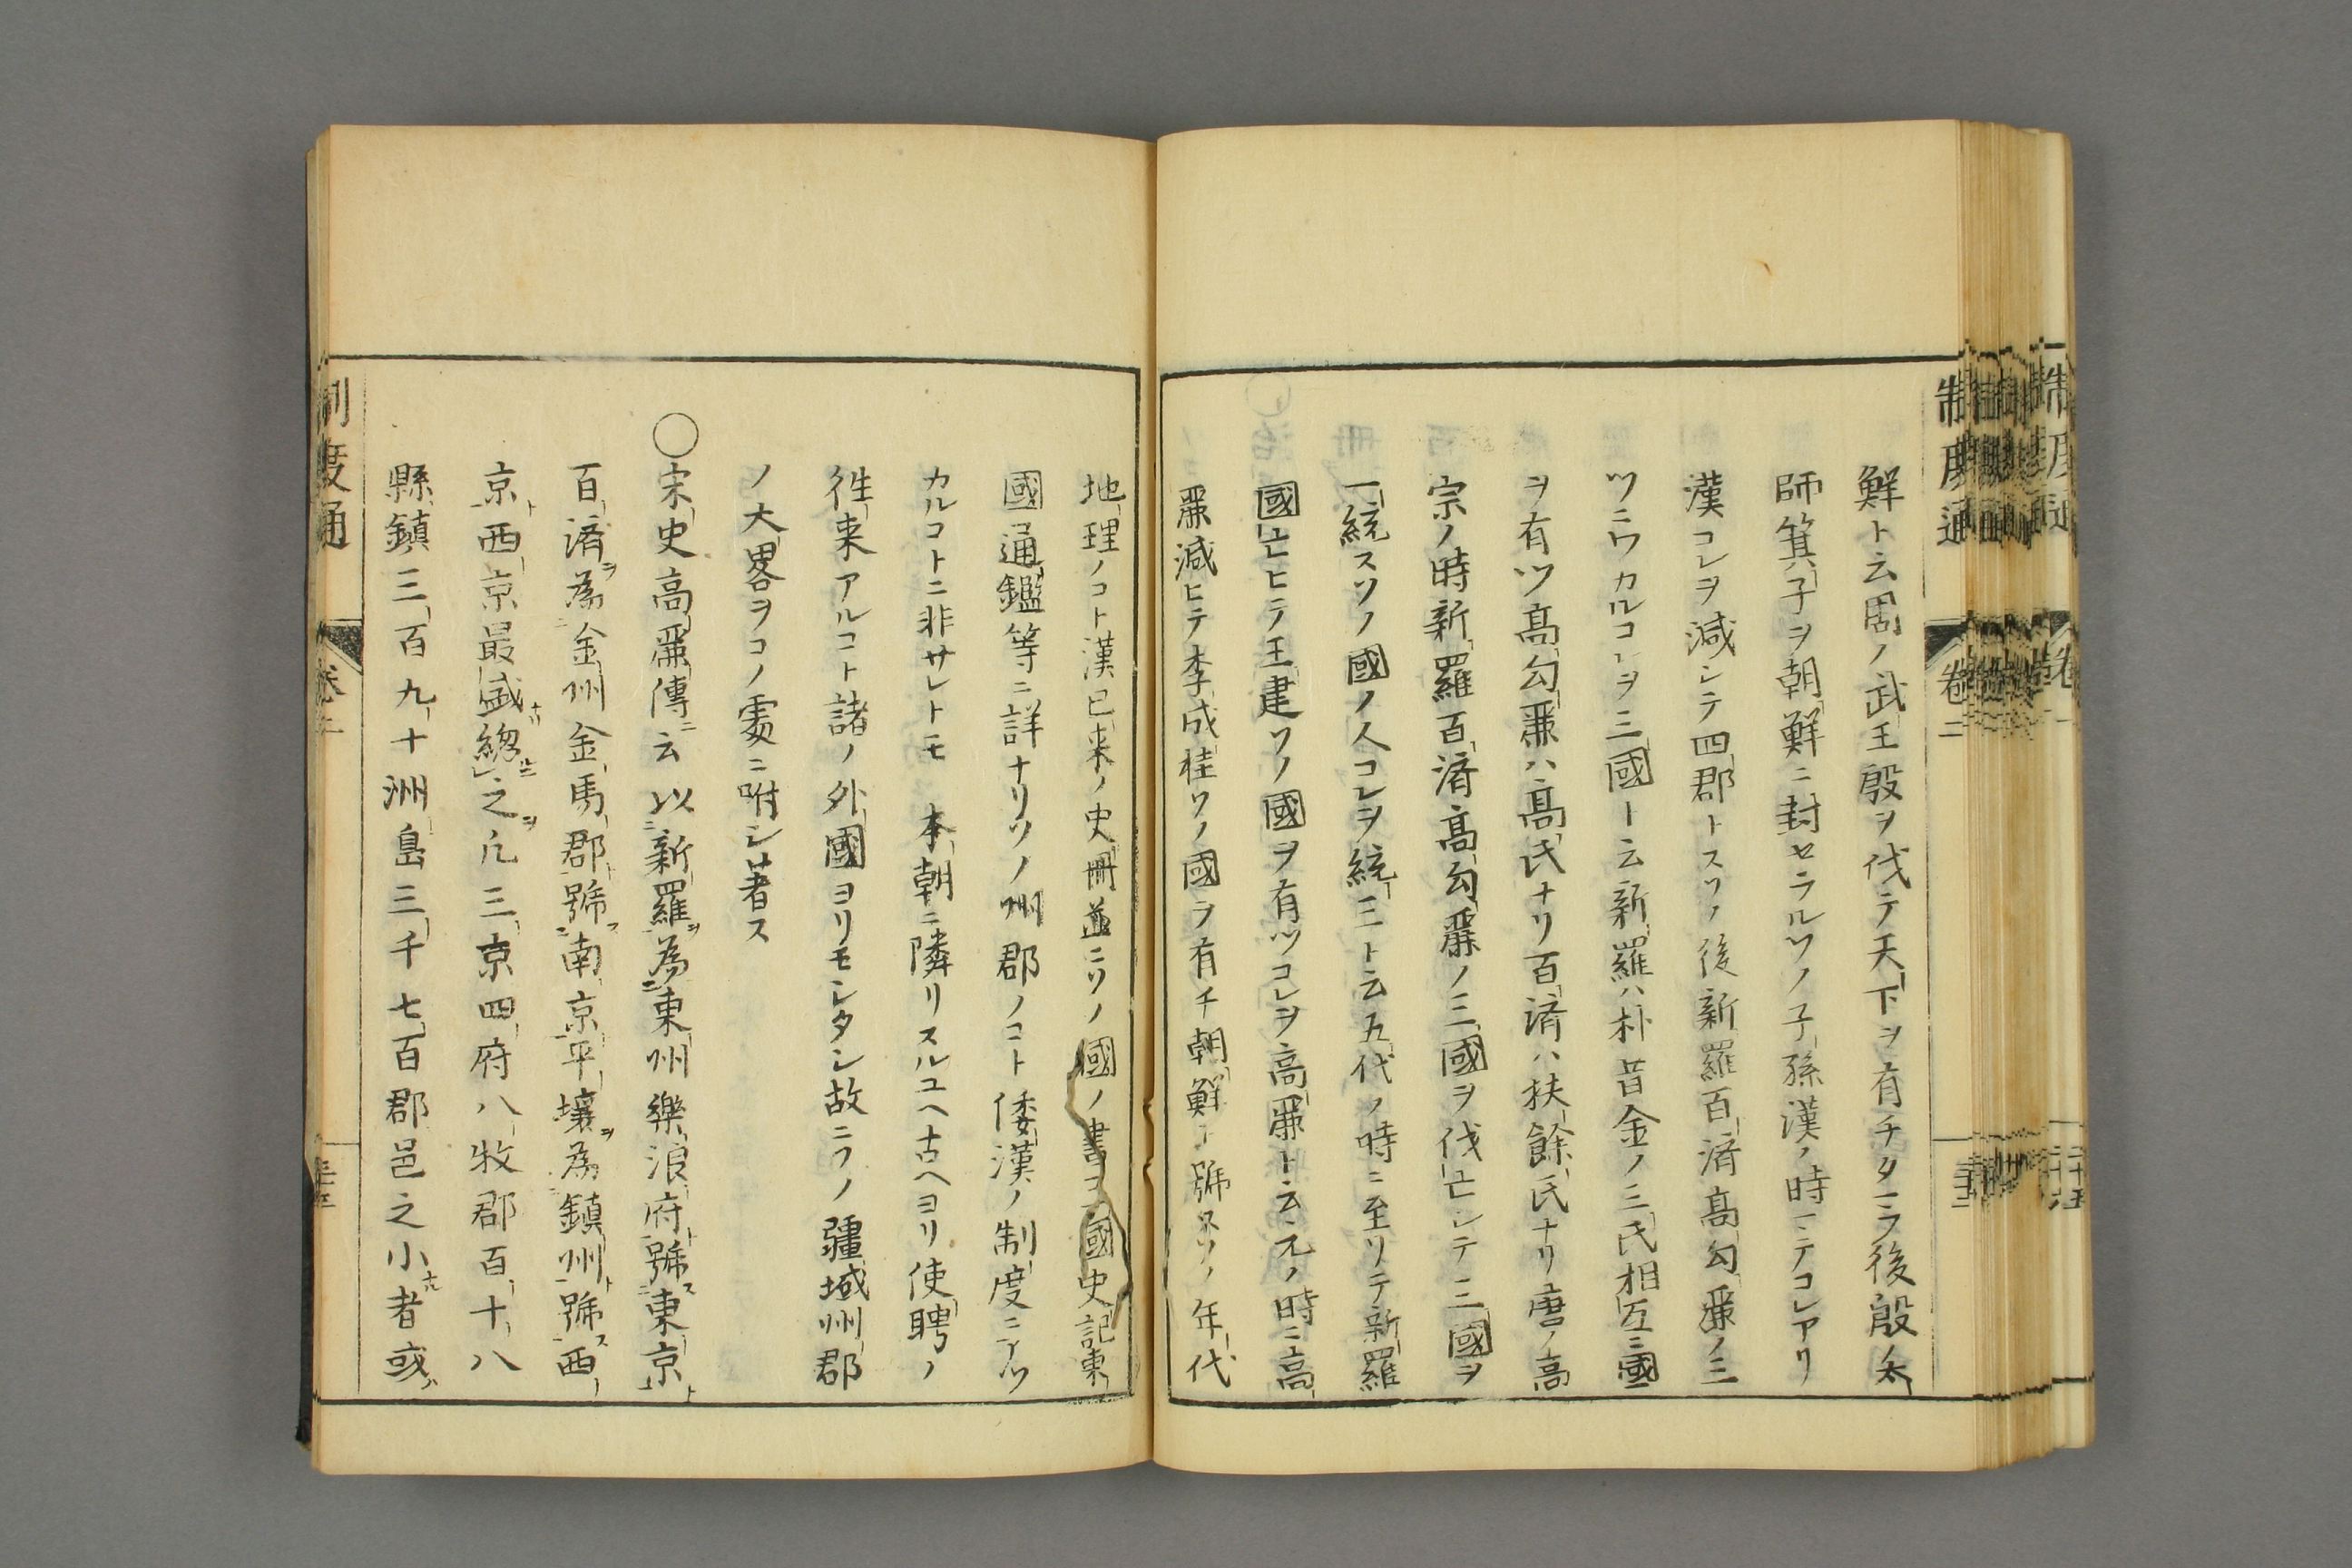 鮮ト云周ノ武王殷ヲ伐テ天下ヲ有チタマフ後殷ノ太
師箕子ヲ朝鮮ニ封セラルソノ子孫漢ノ時マテコレアリ
漢コレヲ滅シテ四郡トスソノ後新羅百済高勾麗ノ三
ツニワカルコレヲ三國ト云新羅ハ朴昔金ノ三氏相互ニ國
ヲ有ツ高勾麗ハ高氏ナリ百済ハ扶餘氏ナリ唐ノ高
宗ノ時新羅百済高勾麗ノ三國ヲ伐亡シテ三國ヲ
一統スソノ國ノ人コレヲ統三ト云五代ノ時ニ至リテ新羅
國亡ヒテ王建ソノ國ヲ有ツコレヲ高麗ト云元ノ時ニ高
麗滅ヒテ李成桂ソノ國ヲ有チ朝鮮ト號スソノ年代
地理ノコト漢已来ノ史冊並ニソノ國ノ書三國史記東
國通鑑等ニ詳ナリソノ州郡ノコト倭漢ノ制度ニアツ
カルコトニ非サレトモ 本朝ニ隣リスルユヘ古ヘヨリ使聘ノ
徃来アルコト諸ノ外國ヨリモシタシ故ニソノ疆域州郡
ノ大畧ヲコノ處ニ附シ著ス
○宋史高麗傳ニ云以新羅ヲ為東州樂浪府ト號ス東京ト
百済ヲ為金州金馬郡號ス南京平壤ヲ為鎮州ト號ス西
京ト西京最盛ナリ總之ヲ凢三京四府八牧郡百十八
縣鎮三百九十洲島三千七百郡邑之小者或ハ
制度通
卷二
制度通
卷二